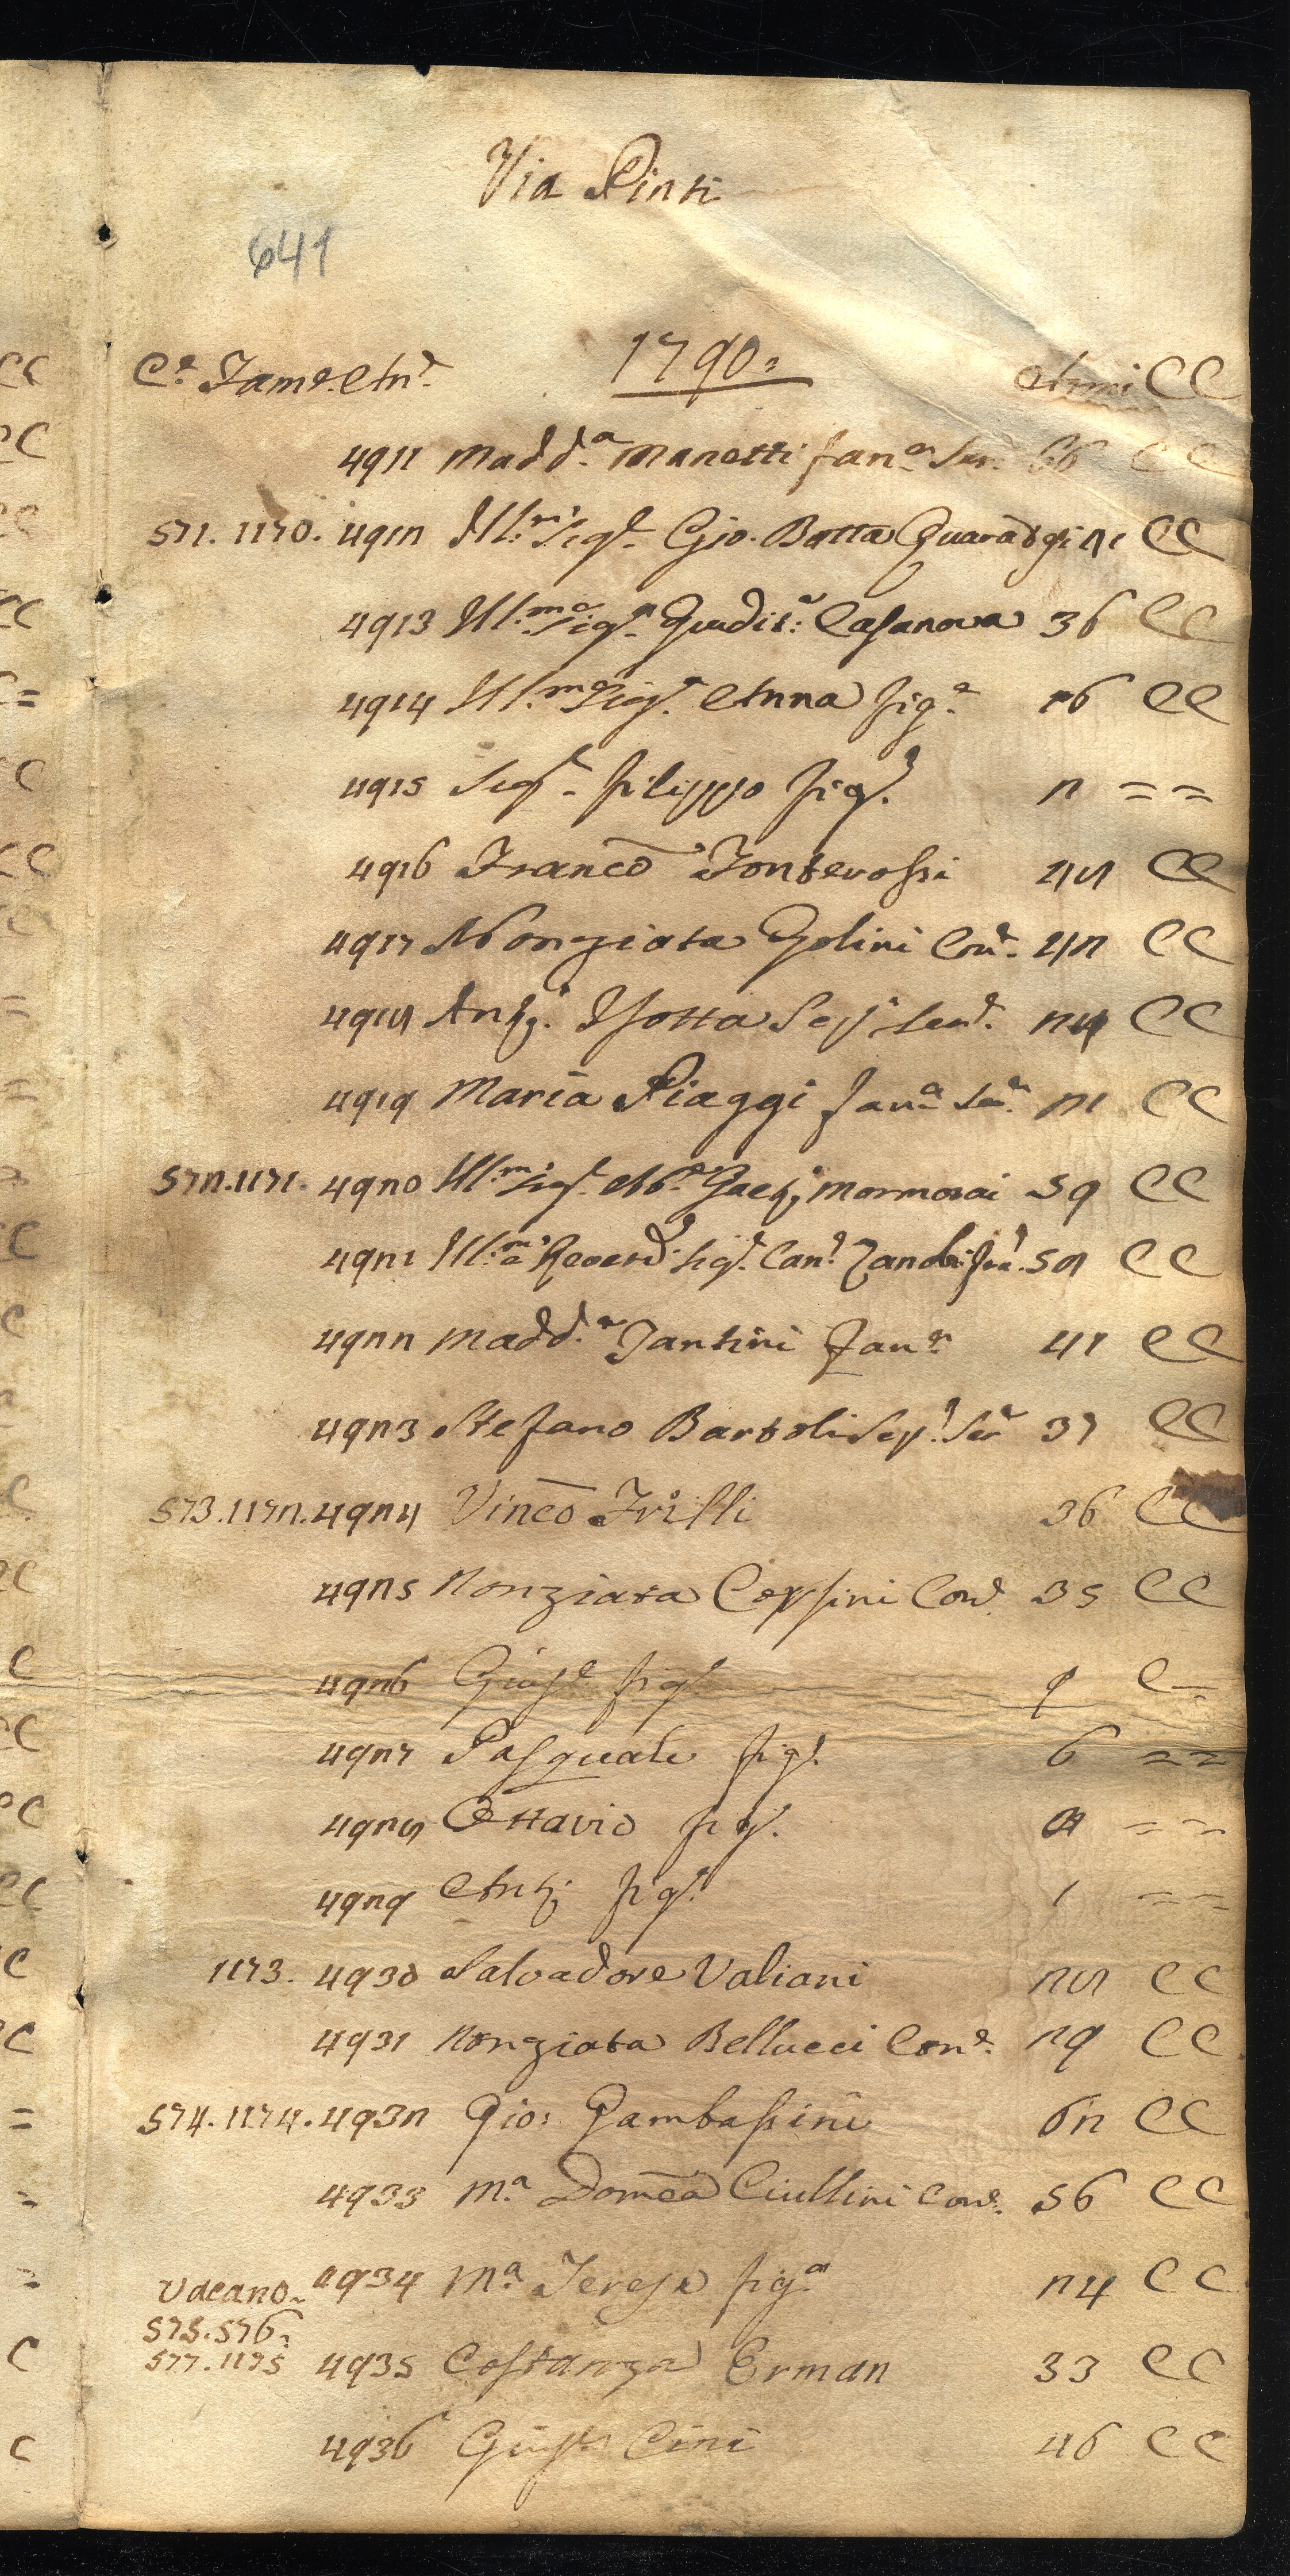 Via Pinti
641
C.e Fam.e An.e 1790. Anni CC
4911 Madd.a Manetti fan.a Ser. 66 CC
571. 1170. 4912 Ill.mo Sig.e Gio. Batta Guaradgi 21 CC
4913 Ill.ma Sig.a Giudit.a Casanova 36 CC
4914 Ill.ma Sig.a Anna fig.a 16 CC
4915 Sig.e filippo fig.e 2 = =
4916 Franco Fonterossi 48 CC
4917 Nonziata Golini Con.e 42 CC
4918 Ant.o Isotta Ser.e 24 CC
4919 Maria Piaggi fan.a Ser.a 21 CC
572.1171. 4920 Ill.mo Sig.e Ab.e Gaet.o Mormorai 59 CC
4921 Ill.mo e Reverd. Sig.e Can.e Zanobi fra. 58 CC
4922 Madd.a Santini fan.a 41 CC
4923 Stefano Bartoli Ser.e 37 CC
573.1172. 4924 Vinco Frilli 36 CC
4925 Nonziata Coppini Con.e 35 CC
4926 Gius.e fig.e 9 C =
4927 Pasquale fig.e 6 = =
4928 Ottavio fig.e = =
4929 Ant.o fig.e 1 = =
1173. 4930 Salvadore Valiani 28 CC
4931 Nonziata Bellucci Con.e 29 CC
574.1174. 4932 Gio: Gambassini 62 CC
4933 M.a Domca Ciullini Con.e 56 CC
Vacano. 4934 M.a Teresa fig.a 24 CC
575.576.
577.1175 4935 Costanza Erman 33 CC
4936 Gius.e Cini 46 CC